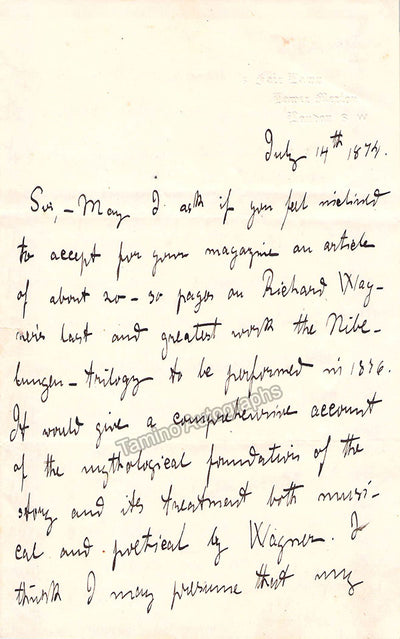 Fair Lawn
Lower Merton
London S.W.
July 14th 1874.
Sir, – May I ask if you feel inclined
to accept for your magazine an article
of about 20–30 pages on Richard Wag-
ner's last and greatest work the Nibe-
lungen–trilogy to be performed in 1876.
It would give a comprehensive account
of the mythological foundation of the
story and its treatment both musi-
cal and poetical by Wagner. I
think I may presume that my
Tamino Autographs